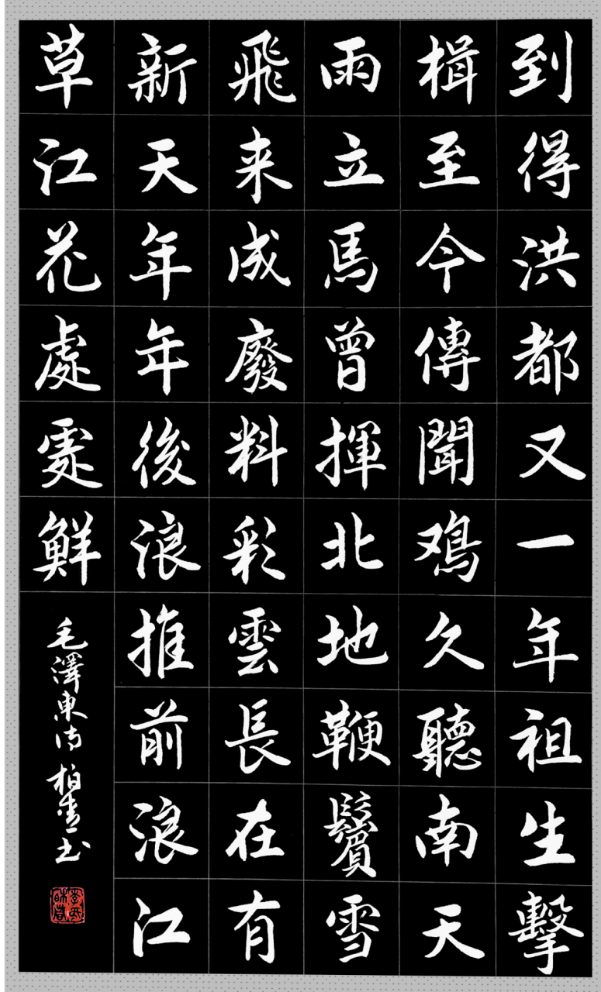 到得洪都又一年祖生擊
楫至今傳聞鳮久聽南天
雨立馬曾揮北地鞭鬢雪
飛来成廢料彩雲長在有
新天年年後浪推前浪江
草江花處處鮮
毛澤東詩